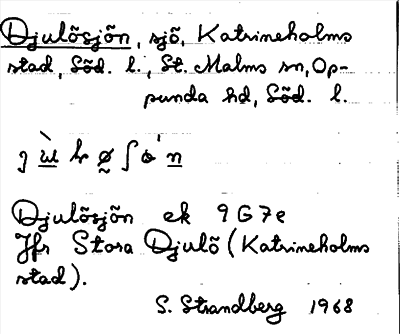 Djulösjön, sjö, Katrineholms
stad, Söd. l., St. Malms sn, Op-
punda hd, Söd. l.
Djulösjön ek 9G7e
Jfr Stora Djulö (Katrineholms
stad).
S. Strandberg 1968